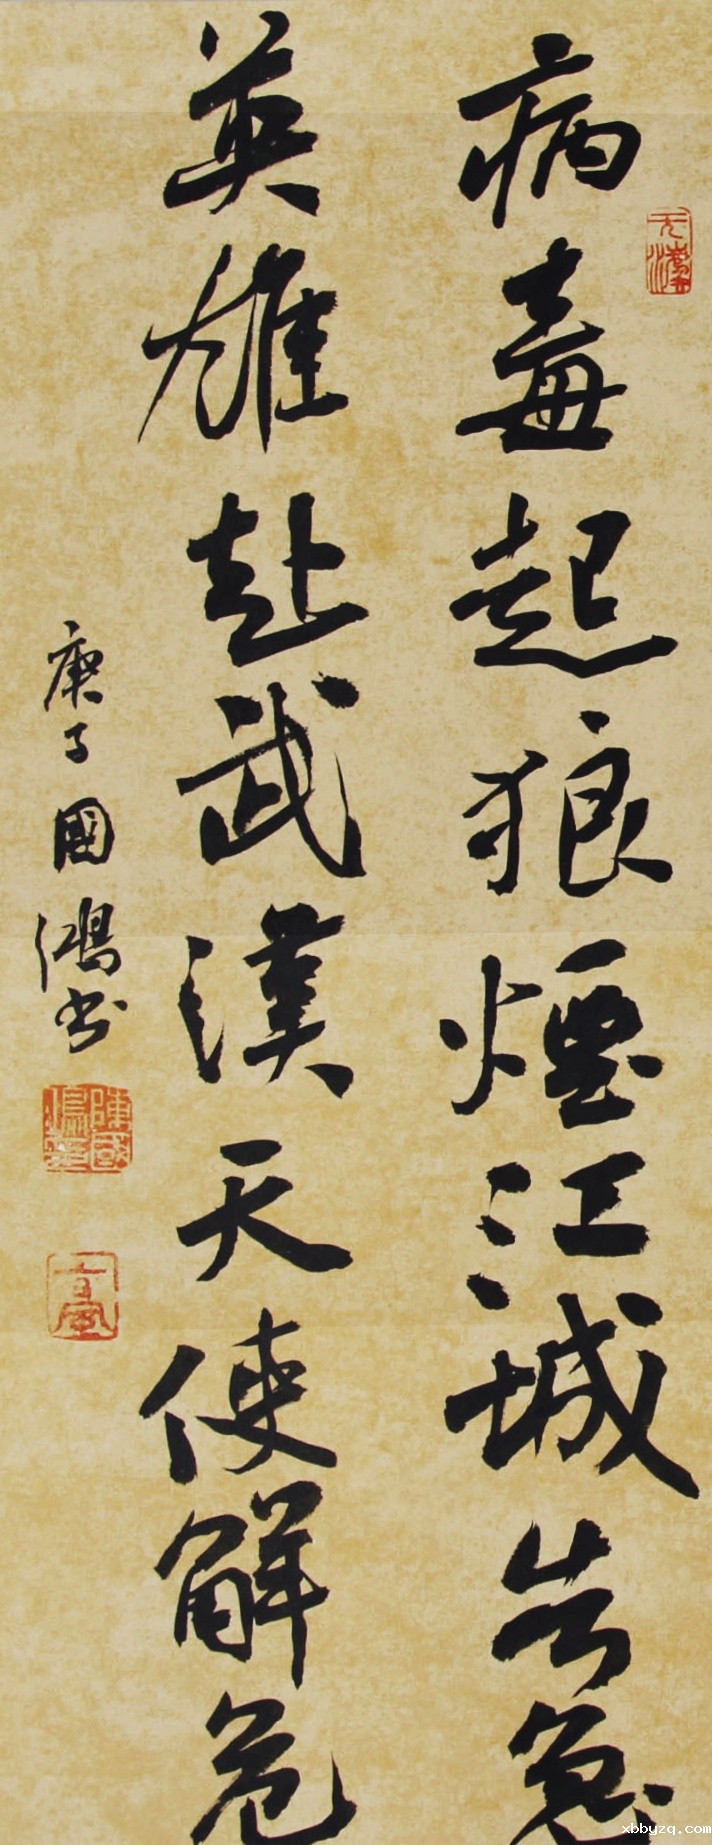 病毒起狼煙江城告急
英雄赴武漢天使解危
庚子國鴻书
xbbyzq.com